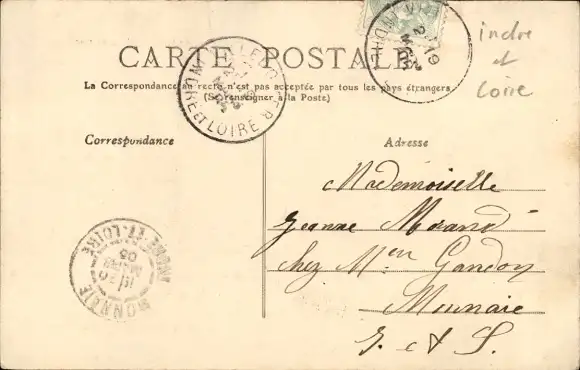 CARTE POSTALE
La Correspondance au recto n'est pas acceptée par tous les pays étrangers
(Se renseigner à la Poste)
Correspondance
Adresse
indre
et
Loire
Mademoiselle
Jeanne Morand
chez Men Gandon
Monnaie
I. et L.
INDRE ET LOIRE
MONNAIE
INDRE-ET-LOIRE